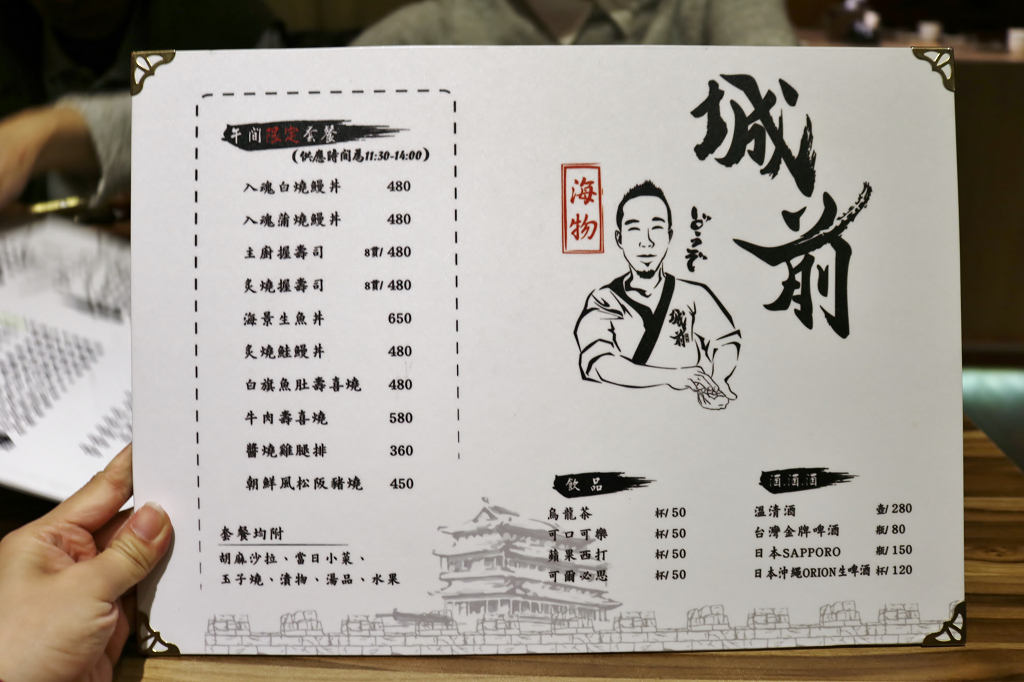 午間限定套餐
(供應時間為11:30-14:00)
入魂白燒鰻丼 480
入魂蒲燒鰻丼 480
主廚握壽司 8貫/ 480
炙燒握壽司 8貫/ 480
海景生魚丼 650
炙燒鮭鰻丼 480
白旗魚肚壽喜燒 480
牛肉壽喜燒 580
醬燒雞腿排 360
朝鮮風松阪豬燒 450
套餐均附
胡麻沙拉、當日小菜、
玉子燒、漬物、湯品、水果
城前
海物
どうぞ
城前
飲品
烏龍茶 杯/ 50
可口可樂 杯/ 50
蘋果西打 杯/ 50
可爾必思 杯/ 50
酒.酒.酒
溫清酒 壺/ 280
台灣金牌啤酒 瓶/ 80
日本SAPPORO 瓶/ 150
日本沖繩ORION生啤酒 杯/ 120